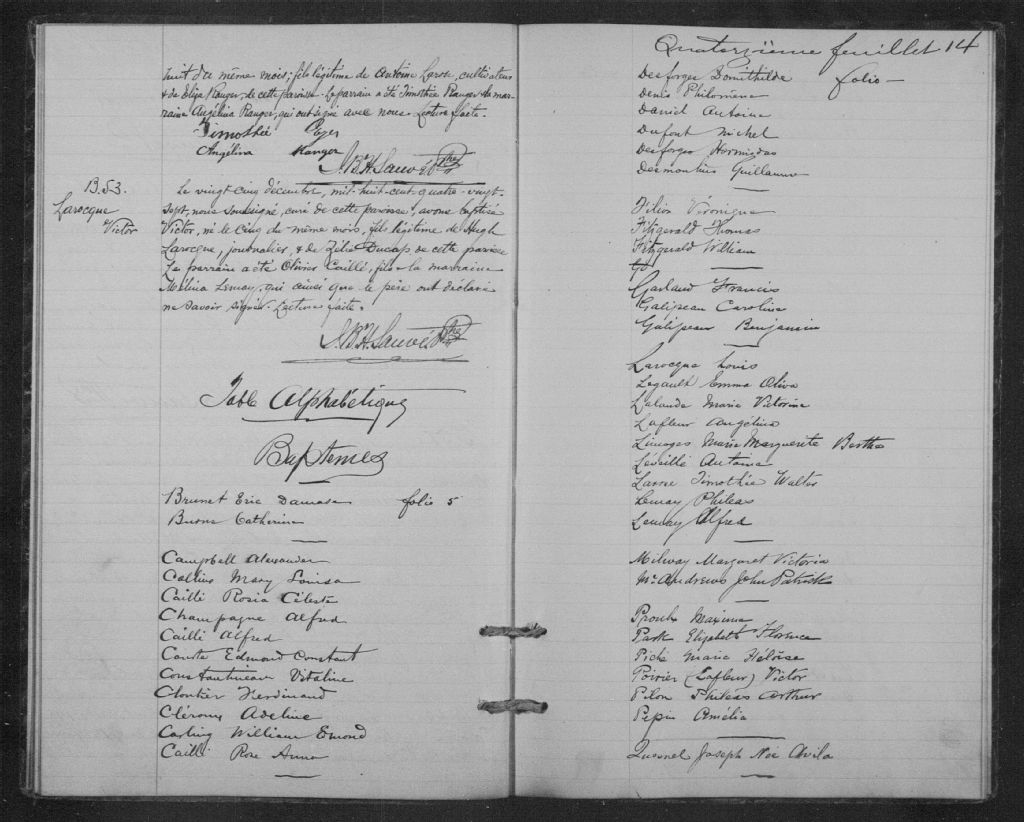 huit du même mois, fils légitime de Antoine Larose, cultivateur
& de Eliza Ranger, de cette paroisse. Le parrain a été Timothée Ranger & la mar-
raine Angélina Ranger, qui ont signé avec nous. Lecture faite.
Timothée
Angélina Ranger
J.Bte H. Sauvé Ptre
B. 53.
Larocque
Victor
Le vingt cinq décembre, mil-huit-cent-quatre-vingt-
sept, nous soussigné, curé de cette paroisse, avons baptisé
Victor, né le cinq du même mois, fils légitime de Hugh
Larocque, journalier, & de Zélie Ducap, de cette paroisse
Le parrain a été Olivier Caillé, fils & la marraine
Mélina Lemay, qui ainsi que le père ont déclaré
ne savoir signer. Lecture faite.
J.Bte H. Sauvé Ptre
Table Alphabétique
Baptemes
Brunet Eric Damase folio 5
Burns Catherine
Campbell Alexander
Collins Mary Louisa
Caillé Rosia Céleste
Champagne Alfred
Caillé Alfred
Edmond Constant
Constantineau Vitaline
Cloutier Ferdinand
Cléroux Adeline
Carling William Emond
Caillé Rose Anna
Quatorzième feuillet 14
Desforges Domithilde folio
Denis Philomène
Daniel Antoine
Dufont Michel
Desforges Hormisdas
Desmoulins Guillaume
Filion Véronique
Fitzgerald Thomas
Fitzgerald William
Ga
Garland Francis
Galipeau Caroline
Galipeau Benjamin
Larocque Louis
Legault Emma Oliva
Lalande Marie Victorine
Lafleur Angélina
Limoges Marie Marguerite Bertha
Léveillé Antoine
Larose Timothée Walter
Lemay Philéas
Lemay Alfred
Milway Margaret Victoria
McAndrews John Patrick
Proulx Maxima
Park Elizabeth Florence
Piché Marie Héloïse
Poirier (Lafleur) Victor
Pilon Philéas Arthur
Pepin Amélia
Quesnel Joseph Noé Avila